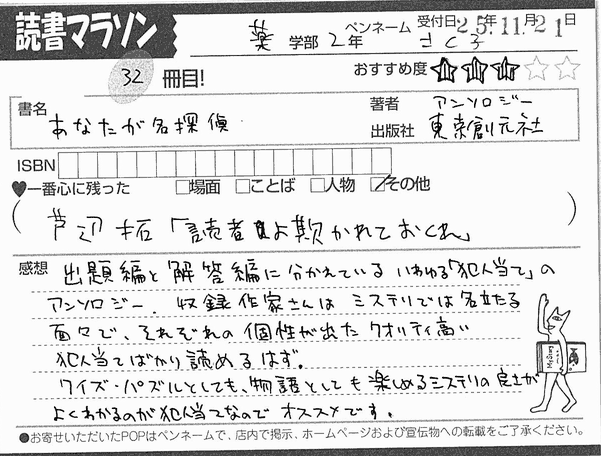 読書マラソン
薬 学部 2年 ペンネーム さくら 受付日 25年11月21日
32 冊目!
おすすめ度
書名 あなたが名探偵
著者 アンソロジー
出版社 東京創元社
ISBN
♥一番心に残った □場面 □ことば □人物 ☑その他
(芦辺拓「読者よ欺かれておくれ」)
感想 出題編と解答編に分かれているいわゆる「犯人当て」の
アンソロジー. 収録作家さんはミステリでは名立たる
面々で、それぞれの個性が出たクオリティ高い
犯人当てばかり読めるはず。
クイズ・パズルとしても、物語としても楽しめるミステリの良さが
よくわかるのが犯人当てなのでオススメです。
●お寄せいただいたPOPはペンネームで、店内で掲示、ホームページおよび宣伝物への転載をご了承ください。